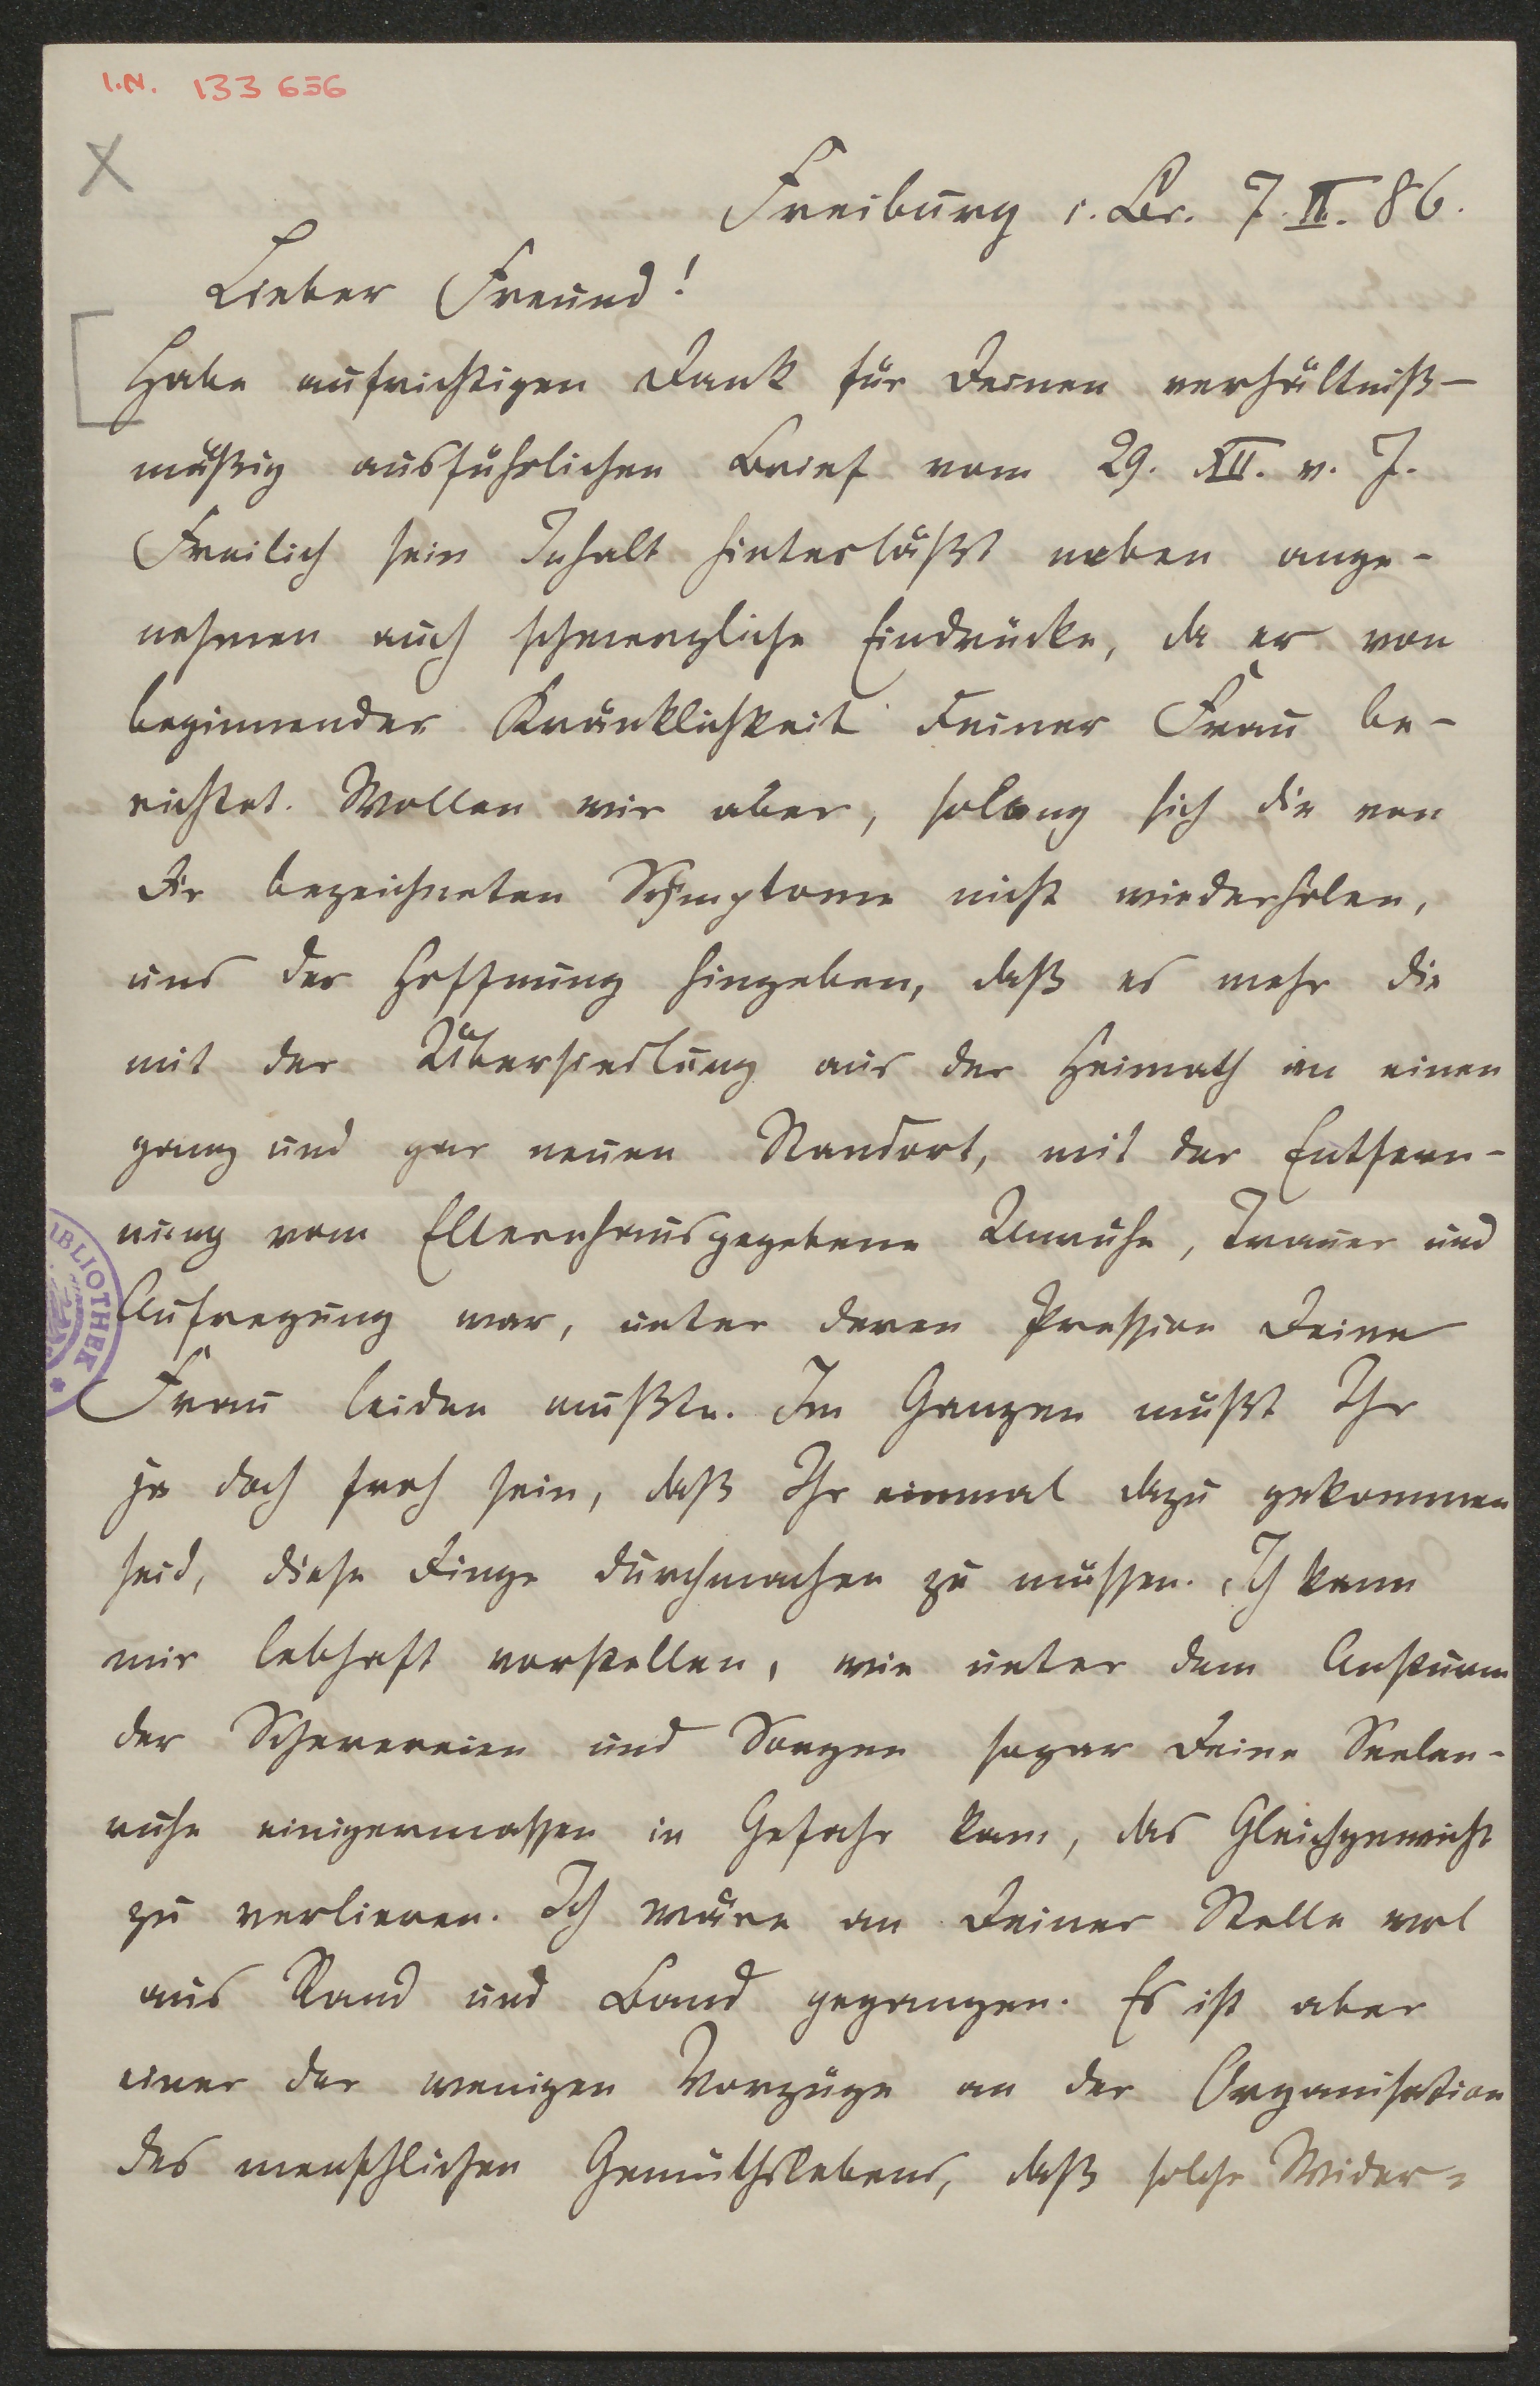 I.N. 133 656
X
Freiburg i. Br. 7. II. 86.
Lieber Freund!
Habe aufrichtigen Dank für Deinen verhältniß-
mäßig ausführlichen Brief vom 29. XII. v. J.
Freilich sein Inhalt hinterläßt neben ange-
nehmen auch schmerzliche Eindrücke, da er von
beginnender Kränklichkeit Deiner Frau be-
richtet. Wollen wir aber, solang sich die von
Dir bezeichneten Symptome nicht wiederholen,
uns der Hoffnung hingeben, daß es mehr die
mit der Übersiedlung aus der Heimath in einen
ganz und gar neuen Standort, mit der Entfern-
nung vom Elternhaus gegebene Unruhe, Trauer und
Aufregung war, unter deren Pression Deine
Frau leiden mußte. Im Ganzen mußt Ihr
ja doch froh sein, daß Ihr einmal dazu gekommen
seid, diese Dinge durchmachen zu müssen. Ich kann
mir lebhaft vorstellen, wie unter dem Ansturm
der Scherereien und Sorgen sogar Deine Seelen-
ruhe einigermassen in Gefahr kam, das Gleichgewicht
zu verlieren. Ich wäre an Deiner Stelle wol
aus Rand und Band gegangen. Es ist aber
einer der wenigen Vorzüge an der Organisation
des menschlichen Gemüthslebens, daß solche Wider-
IBLIOTHEK